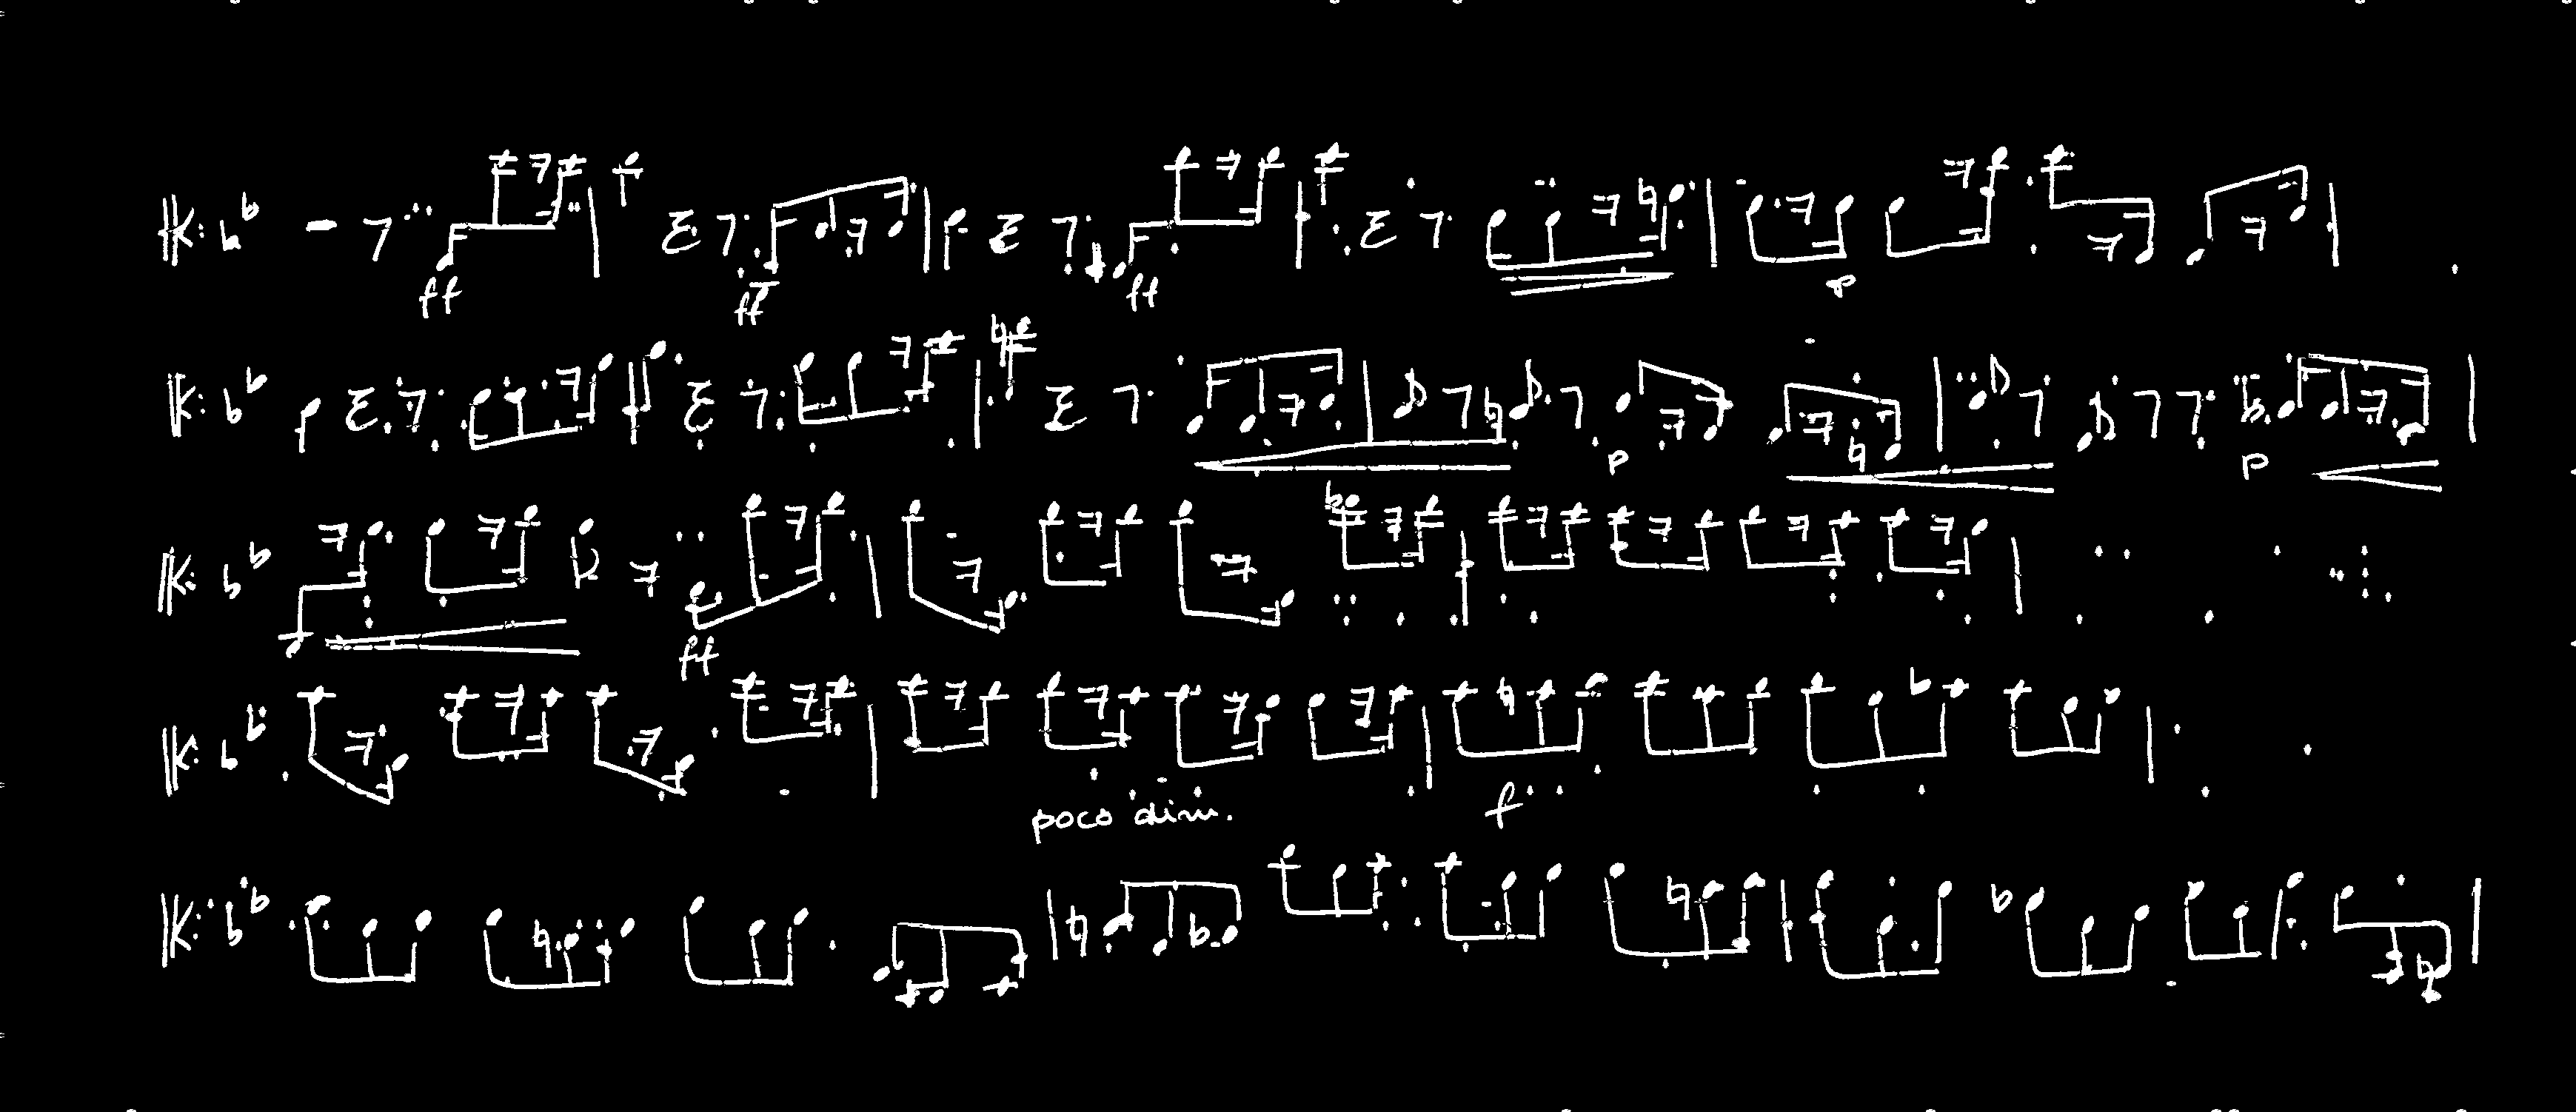 ff ff ff p
p p
ff
poco dim. f